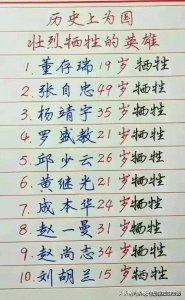 历史上为国
壮烈牺牲的英雄
1.董存瑞19岁牺牲
2.张自忠49岁牺牲
3.杨靖宇35岁牺牲
4.罗盛教21岁牺牲
5.邱少云26岁牺牲
6.黄继光21岁牺牲
7.成本华24岁牺牲
8.赵一曼31岁牺牲
9.赵尚志34岁牺牲
10.刘胡兰15岁牺牲